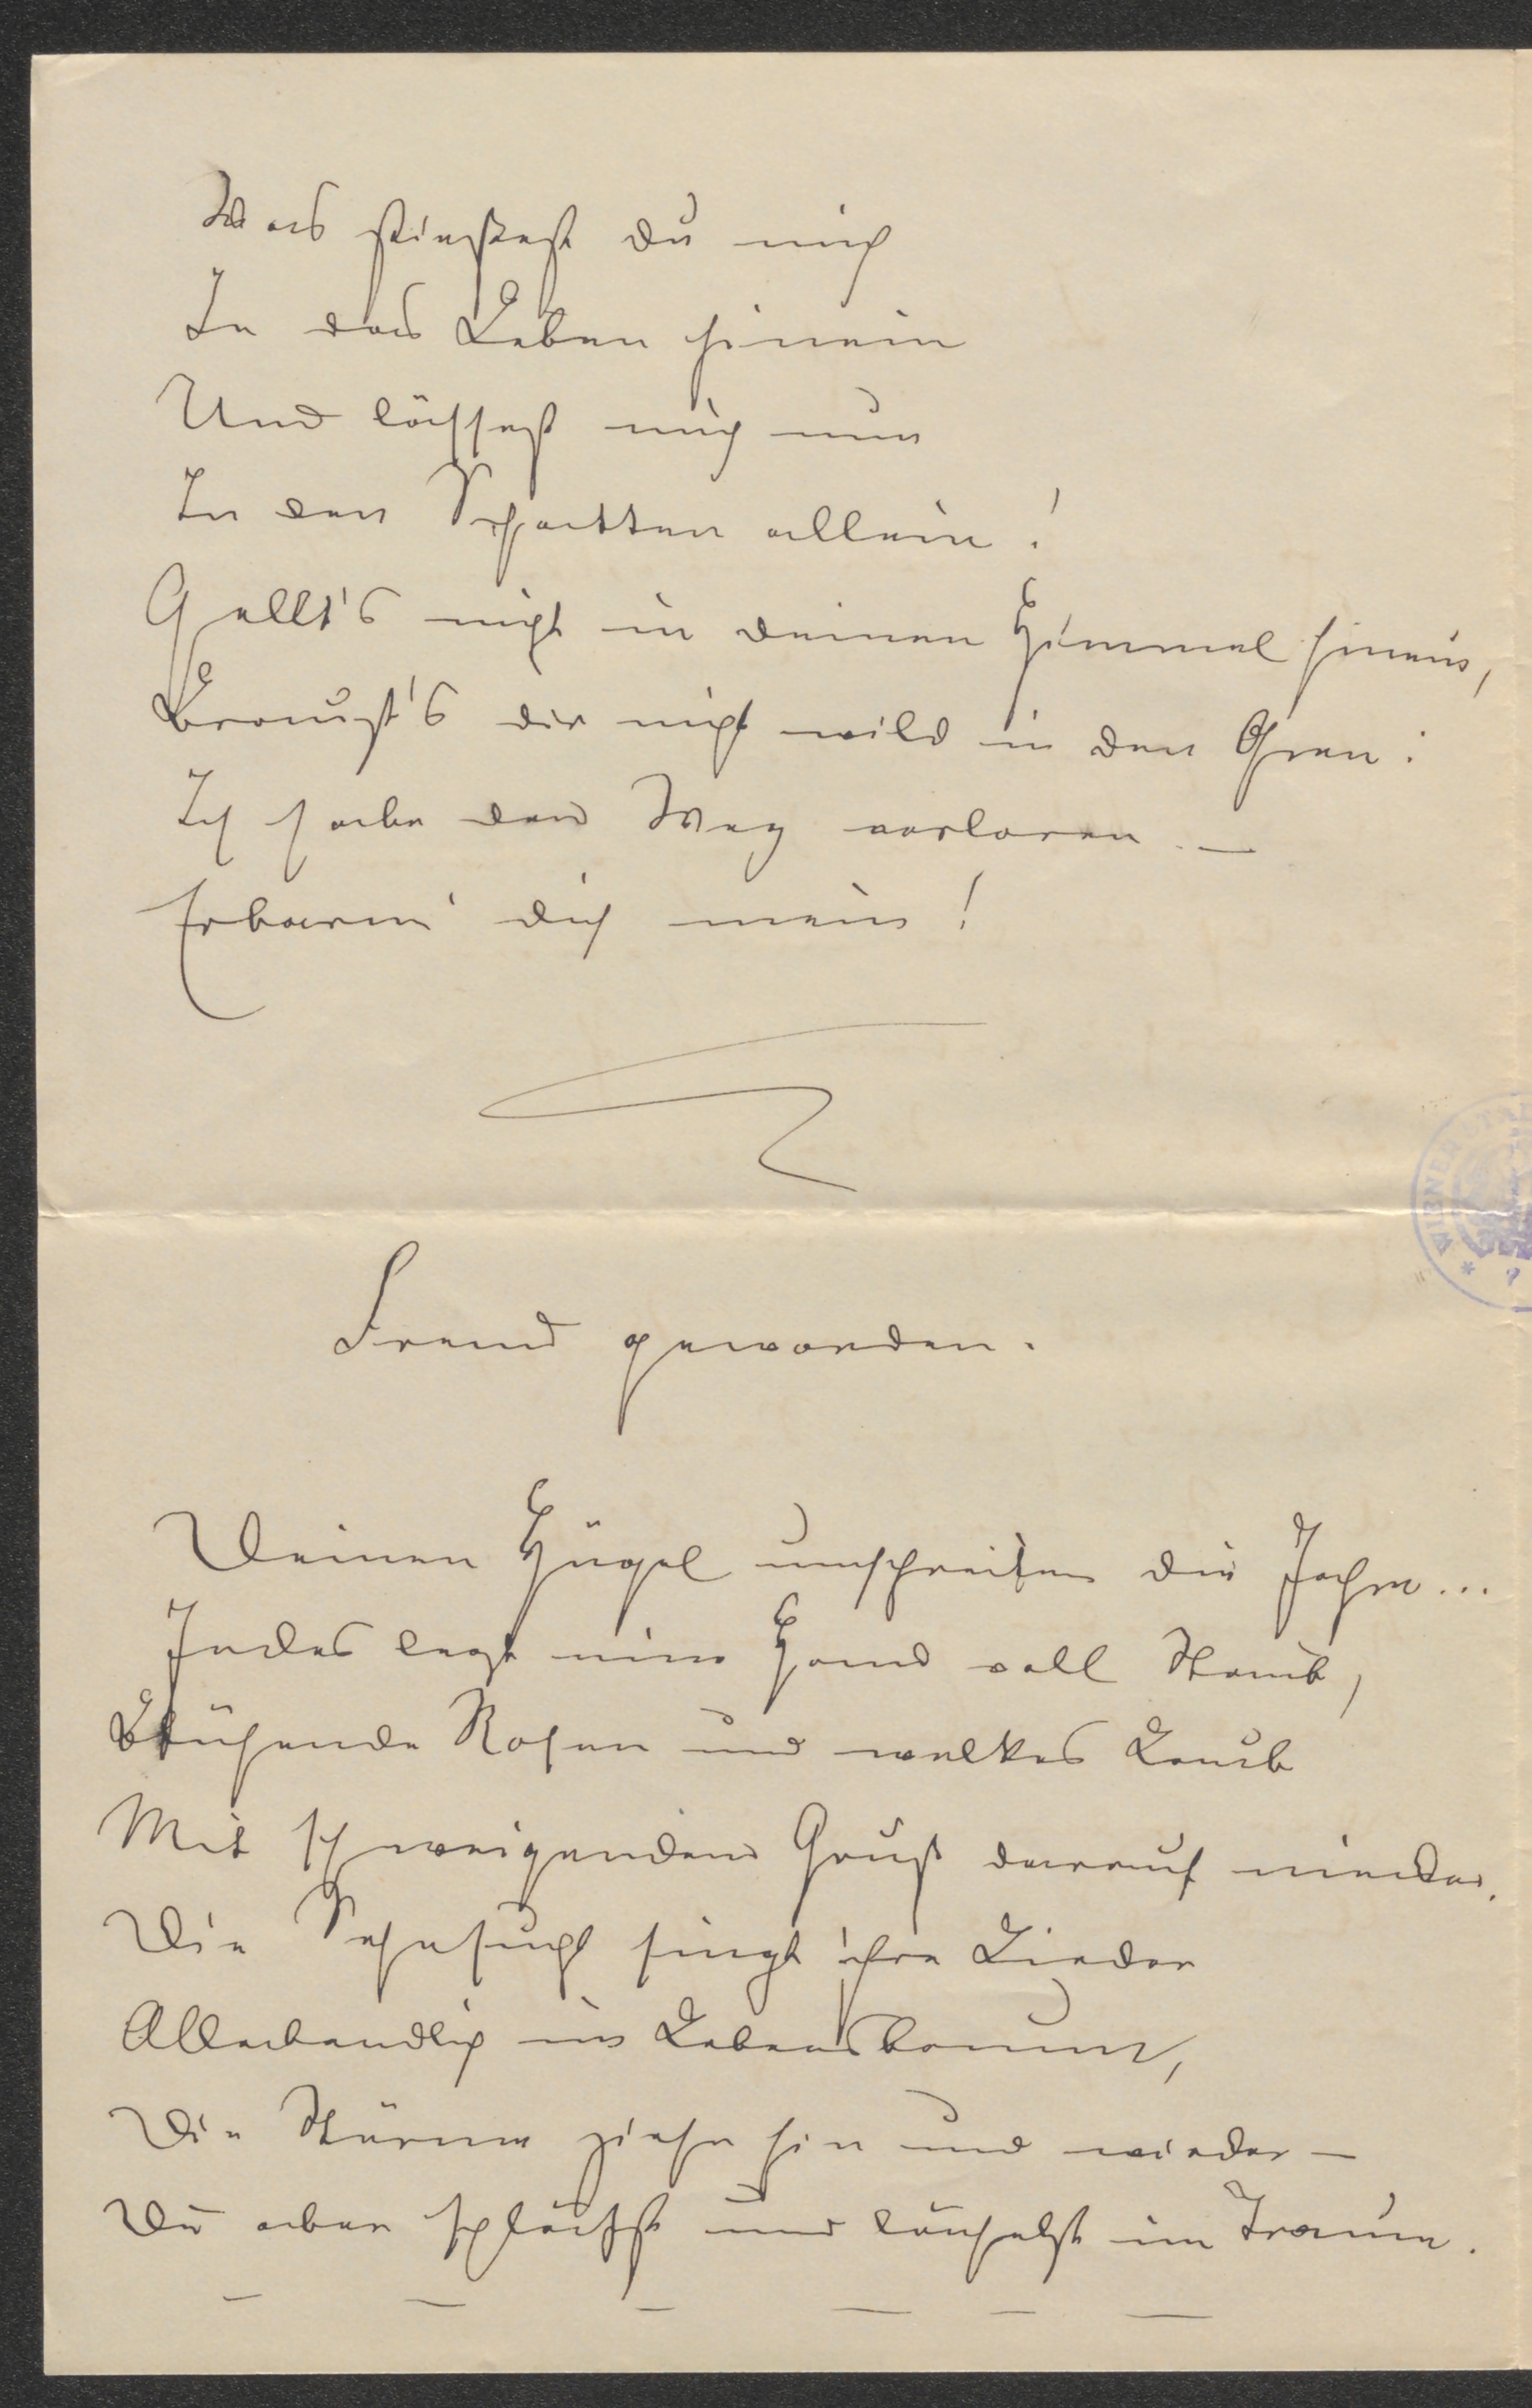 Was stießest du mich
In das Leben hinein
Und lässest mich nun
In den Schatten allein!
Gellt's nicht in deinen Himmel hinaus,
Braust's dir nicht wild in den Ohren:
Ich habe den Weg verloren. —
Erbarm' dich mein!
Fremd geworden.
Deinen Hügel umschreiten die Jahre...
Jedes legt eine Hand voll Staub,
Blühende Rosen und welkes Laub
Mit schweigendem Gruß darauf nieder.
Die Sehnsucht singt ihre Lieder
Allabendlich im Lebensbaume,
Die Stürme ziehn hin und wieder —
Du aber schläfst und lächelst im Traume.
WIENER